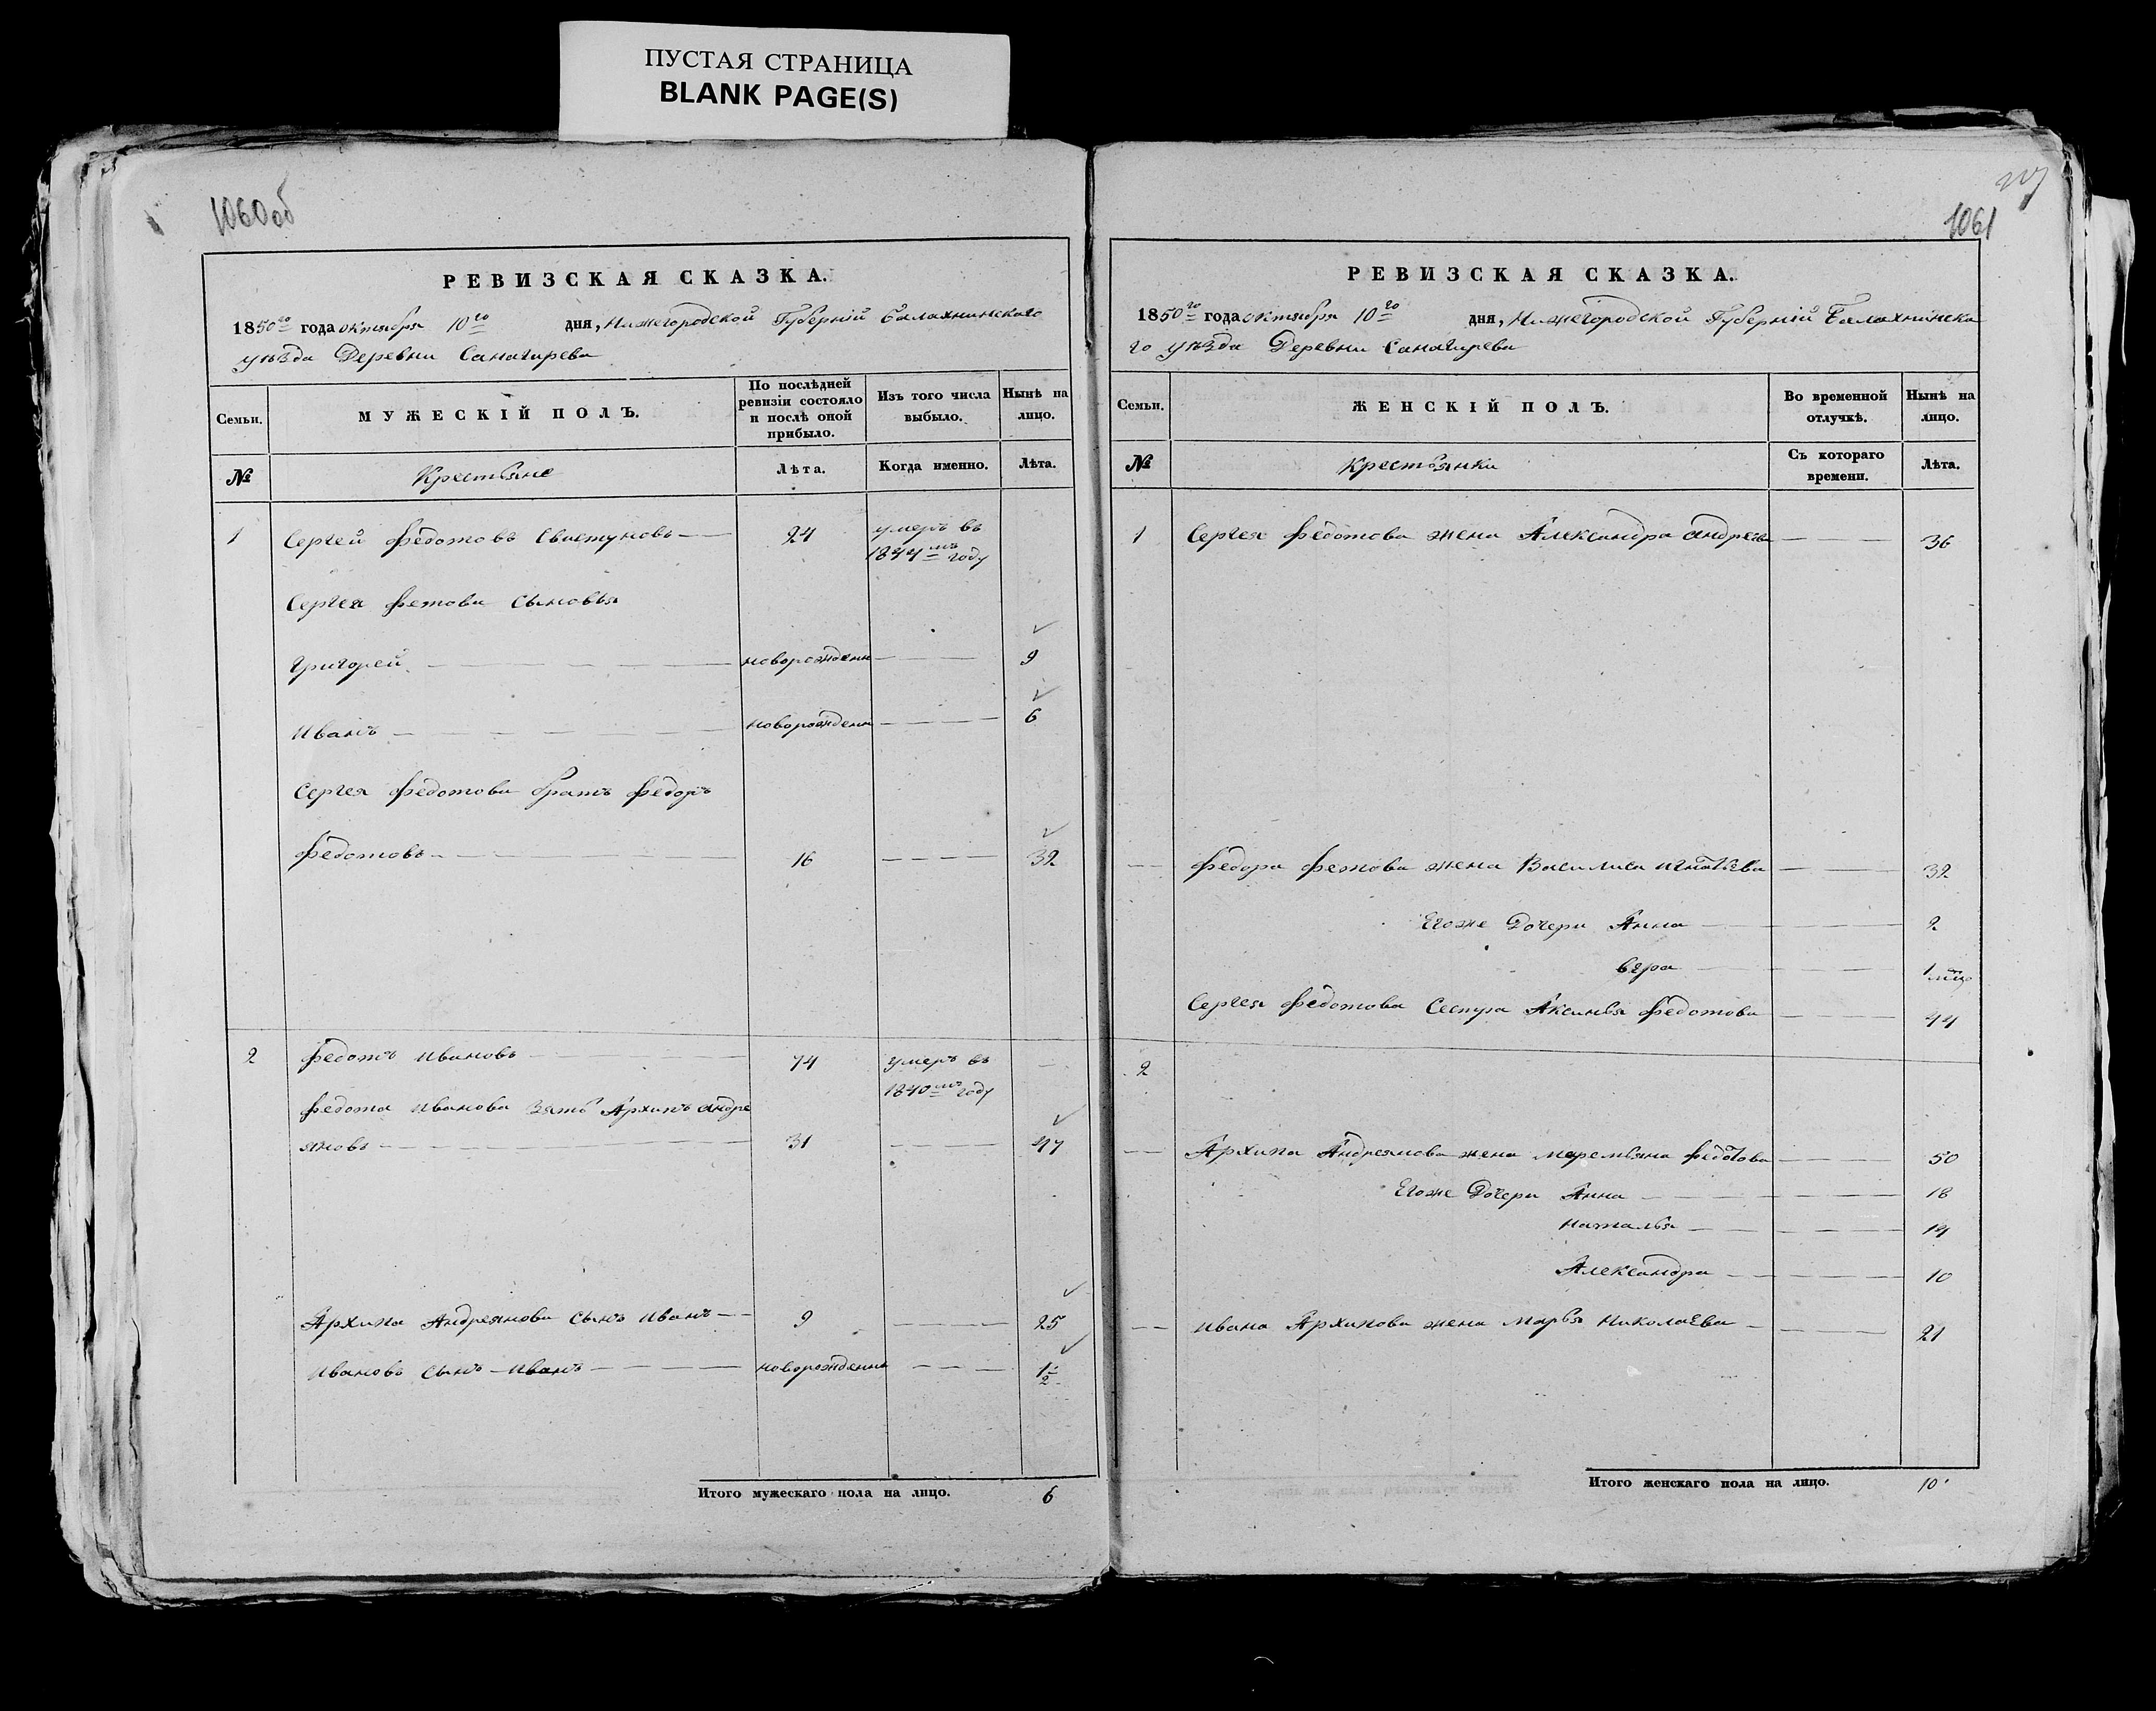 ПУСТАЯ СТРАНИЦА
BLANK PAGE(S)
1060 об
РЕВИЗСКАЯ СКАЗКА.
1850го года октября 10го дня, Нижегородской Губерніи Балахнинскаго
уѣзда Деревни
Семьи.
МУЖЕСКІЙ ПОЛЪ.
По послѣдней ревизіи состояло и послѣ оной прибыло.
Изъ того числа выбыло.
Нынѣ на лицо.
№
Крестьяне
Лѣта.
Когда именно.
Лѣта.
1 Сергей Федотовъ Свистуновъ 24 умеръ въ
1844мъ году
Сергея Фетова сыновья
Григорей новорожденн 9
Иванъ новорожденн 6
Сергея Федотова братъ Федоръ
Федотовъ 16 32
2 Федотъ Ивановъ 74 умеръ въ
1840мъ году
Федота Иванова зять Архипъ Андре
яновъ 31 47
Архипа Андреянова сынъ Иванъ 9 25
Ивановъ сынъ Иванъ новорожденны 1 1/2
Итого мужескаго пола на лицо. 6
1061
РЕВИЗСКАЯ СКАЗКА.
1850го года октября 10го дня, Нижегородской Губерніи Балахнинска
го уѣзда Деревни
Семьи.
ЖЕНСКІЙ ПОЛЪ.
Во временной отлучкѣ.
Нынѣ на лицо.
№
Крестьянки
Съ котораго времени.
Лѣта.
1 Сергея Федотова жена Александра Андрева 36
Федора Фетова жена Василиса Игнатьева 32
Егоже Дочери Анна 2
Вера 1 мѣц
Сергея Федотова Сестра Аксинья Федотова 44
2
Архипа Андреянова жена Маремьяна Федотова 50
Егоже Дочери Анна 18
Наталья 14
Александра 10
Ивана Архипова жена Марья Николаева 21
Итого женскаго пола на лицо. 10